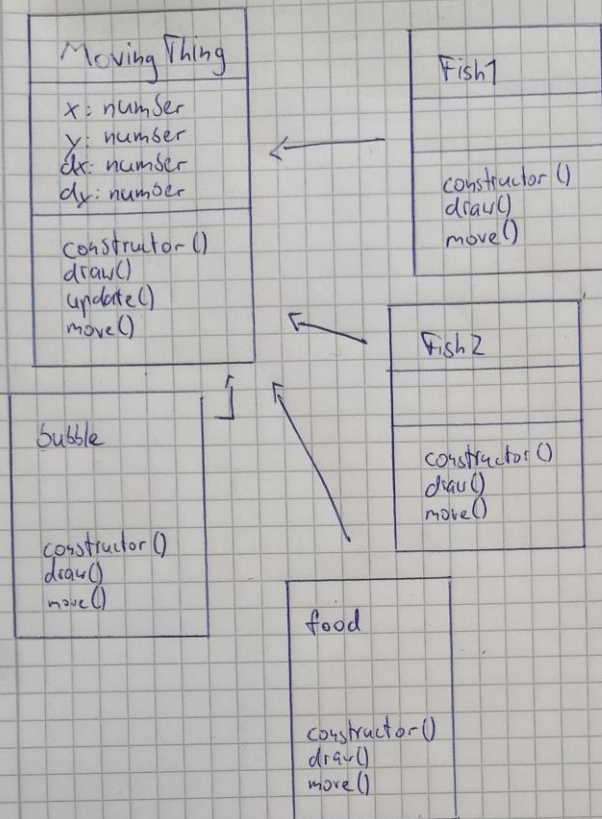 Moving Thing
x: number
y: number
dx: number
dy: number
constructor()
draw()
update()
move()
Fish1
constructor()
draw()
move()
Fish2
constructor()
draw()
move()
bubble
constructor()
draw()
move()
food
constructor()
draw()
move()